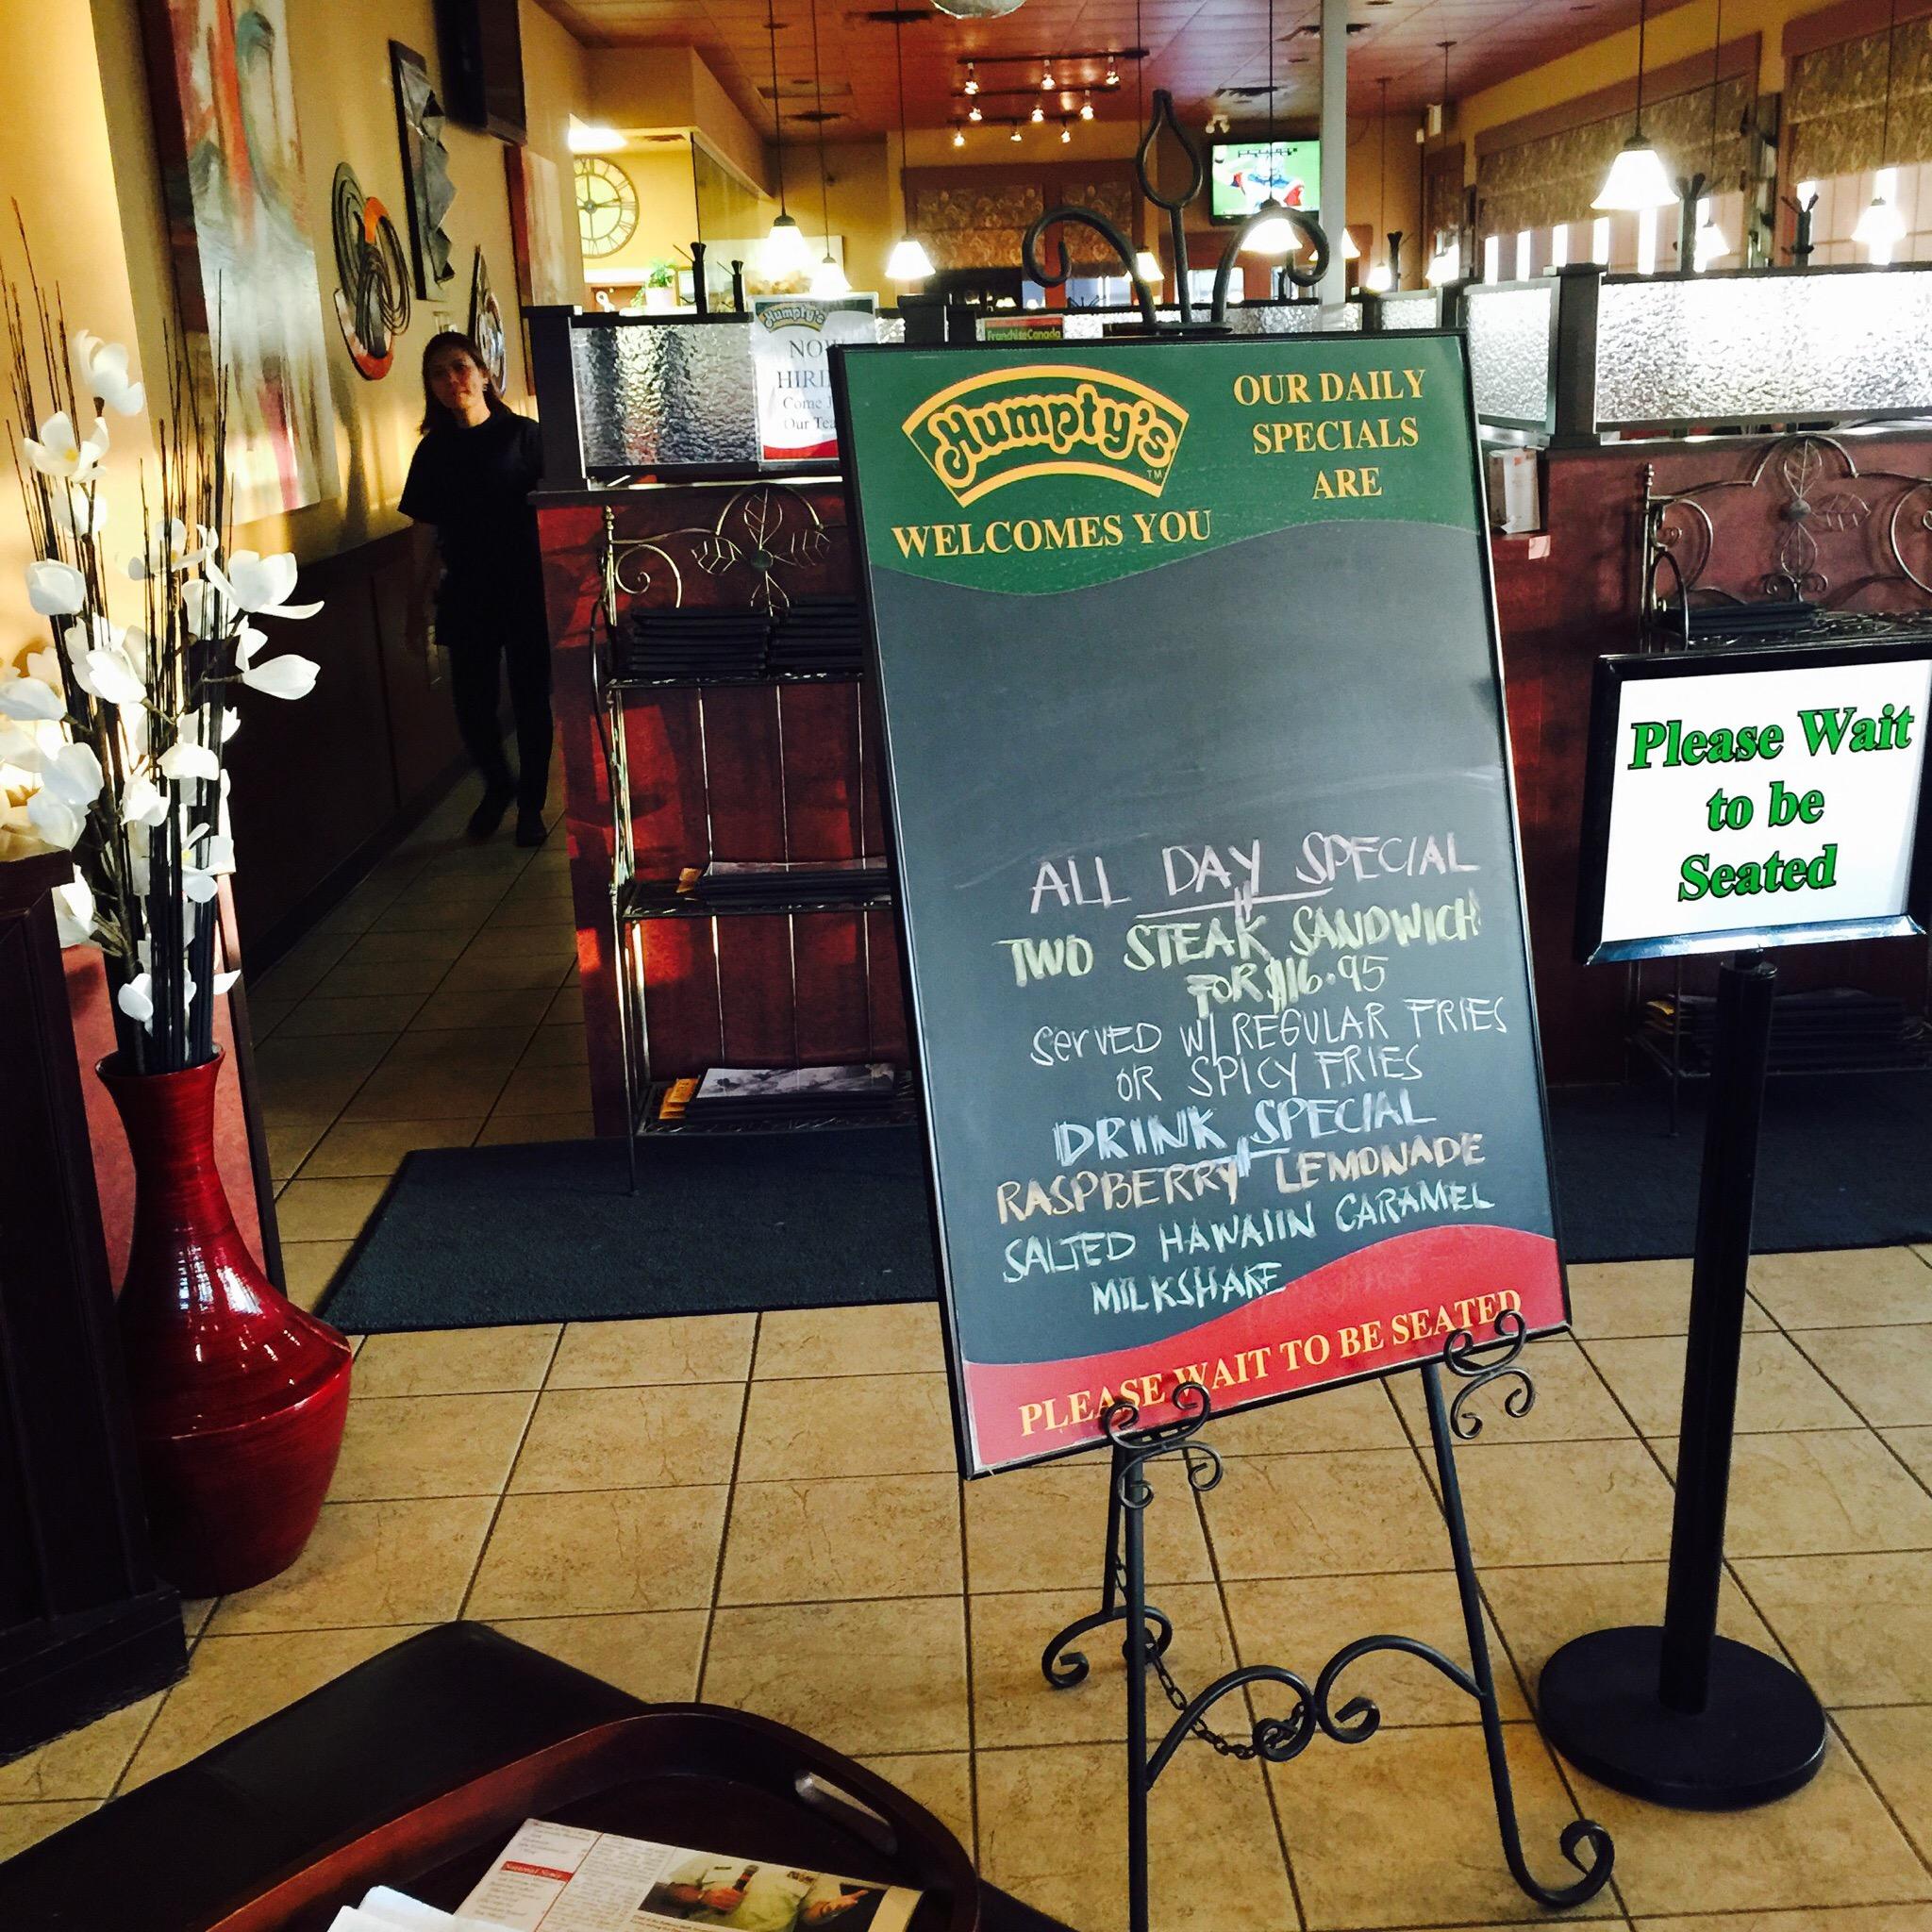 Humpty's
NOW
Come
Our
FranchiseCanada
Humpty's
TM
WELCOMES YOU
OUR DAILY
SPECIALS
ARE
ALL DAY SPECIAL
TWO STEAK SANDWICH
FOR $16.95
SERVED W/ REGULAR FRIES
OR SPICY FRIES
DRINK SPECIAL
RASPBERRY LEMONADE
SALTED HAWAIIN CARAMEL
MILKSHAKE
PLEASE WAIT TO BE SEATED
Please Wait
to be
Seated
National News